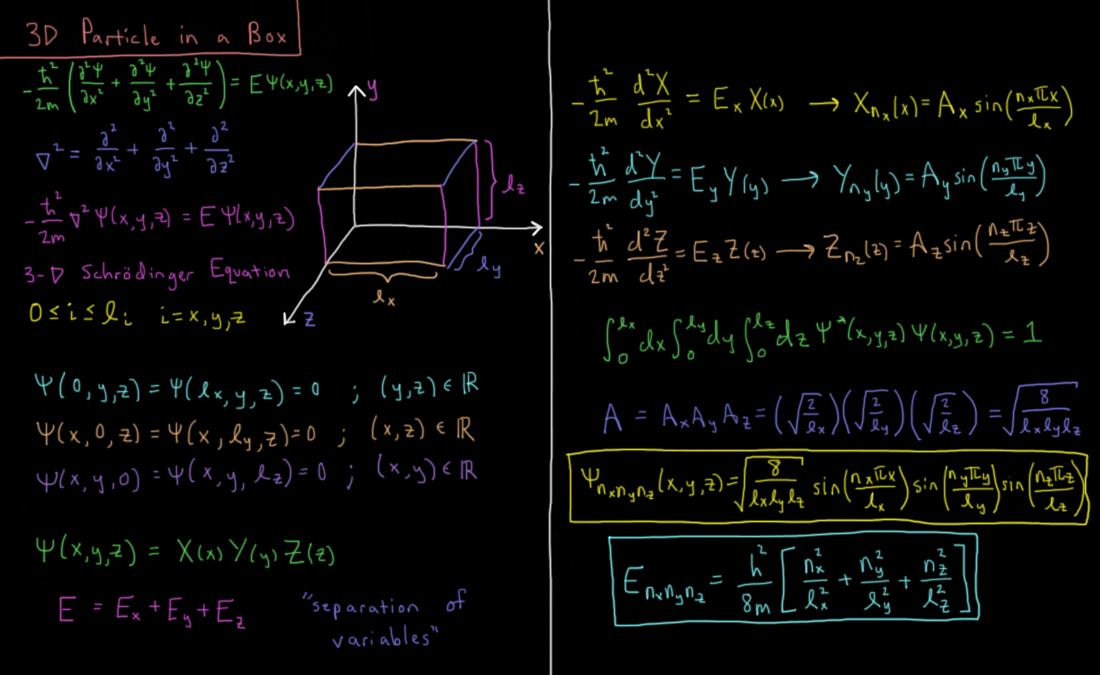 3D Particle in a Box
-ħ²/2m (∂²Ψ/∂x² + ∂²Ψ/∂y² + ∂²Ψ/∂z²) = EΨ(x,y,z)
∇² = ∂²/∂x² + ∂²/∂y² + ∂²/∂z²
-ħ²/2m ∇²Ψ(x,y,z) = EΨ(x,y,z)
3-D Schrödinger Equation
0 ≤ i ≤ l_i   i = x,y,z
y
l_z
x
l_y
l_x
z
Ψ(0,y,z) = Ψ(l_x,y,z) = 0 ; (y,z) ∈ ℝ
Ψ(x,0,z) = Ψ(x,l_y,z) = 0 ; (x,z) ∈ ℝ
Ψ(x,y,0) = Ψ(x,y,l_z) = 0 ; (x,y) ∈ ℝ
Ψ(x,y,z) = X(x) Y(y) Z(z)
E = E_x + E_y + E_z
"separation of
variables"
-ħ²/2m d²X/dx² = E_x X(x) → X_{n_x}(x) = A_x sin(n_xπx/l_x)
-ħ²/2m d²Y/dy² = E_y Y(y) → Y_{n_y}(y) = A_y sin(n_yπy/l_y)
-ħ²/2m d²Z/dz² = E_z Z(z) → Z_{n_z}(z) = A_z sin(n_zπz/l_z)
∫₀^{l_x} dx ∫₀^{l_y} dy ∫₀^{l_z} dz Ψ*(x,y,z) Ψ(x,y,z) = 1
A = A_x A_y A_z = (√(2/l_x)) (√(2/l_y)) (√(2/l_z)) = √(8/(l_x l_y l_z))
Ψ_{n_x n_y n_z}(x,y,z) = √(8/(l_x l_y l_z)) sin(n_xπx/l_x) sin(n_yπy/l_y) sin(n_zπz/l_z)
E_{n_x n_y n_z} = h²/8m [n_x²/l_x² + n_y²/l_y² + n_z²/l_z²]